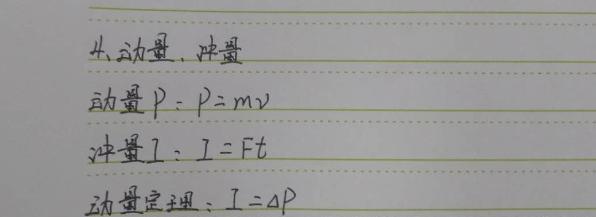 4、动量、冲量
动量P：P=mv
冲量I：I=Ft
动量定理：I=ΔP